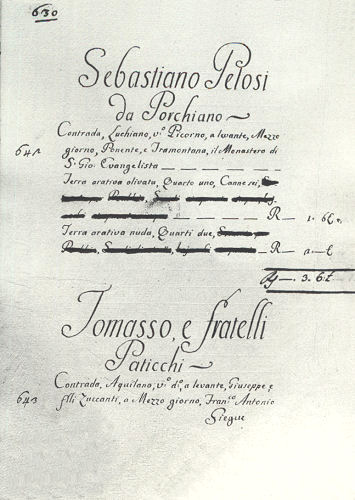 630
Sebastiano Pelosi
da Porchiano
Contrada, Luchiano, v.o Picorno, a levante, Mezzo
641 giorno, Ponente, e Tramontana, il Monastero di
S. Gio: Evangelista
Terra arativa olivata, Quarto uno, Canne sei,
R
Terra arativa nuda, Quarti due,
R
3. 6
Tomasso, e fratelli
Paticchi
Contrada, Aquilano, v.o d.o, a levante, Giuseppe e
643 flli Zuccanti, a Mezzo giorno, Fran.co Antonio
Siegue